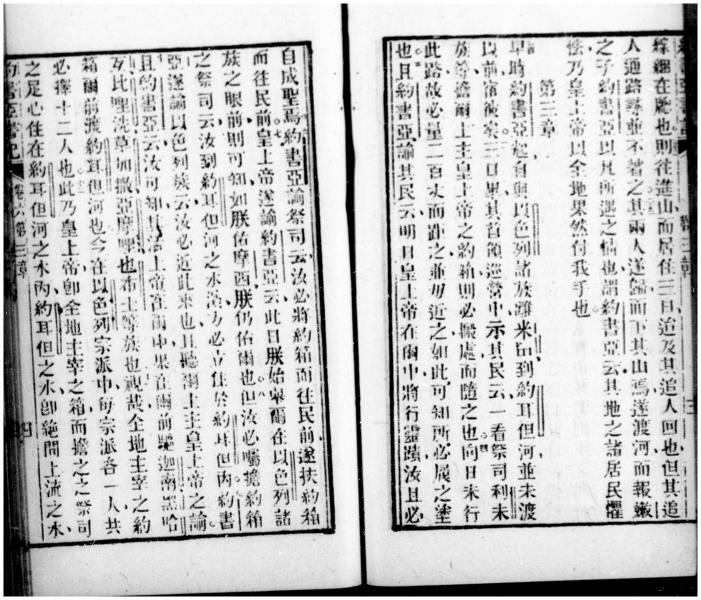 在牕也則往進山而居住三日迨及其追人回也但其追
人通路尋並不着之其兩人遂歸而下其山焉遂渡河而報嫩
之子約書亞以凡所遇之情也謂約書亞云其地之諸居民懼
怯乃皇上帝以全地果然付我手也
第三章
早時約書亞起身與以色列諸族離米到約耳但河並未渡
以前宿彼處三日畢其首領巡營中示其民云一看祭司利未
族等擔爾上主皇上帝之約箱則必搬處而隨之也向日未行
此路故必量二百丈而距之並毋近之如此可知所必展之塗
也且約書亞諭其民云明日皇上帝在爾中將行靈蹟汝且必
自成聖焉約書亞諭祭司云汝必將約箱而往民前遂扶約箱
而往民前皇上帝遂諭約書亞云此日朕始舉爾在以色列諸
族之眼前則可知如朕佑摩西朕仍佑爾也但汝必囑擔約箱
之祭司云汝到約耳但河之水濱方必立住於約耳但內約書
亞遂諭以色列族云汝必近此來也且聽爾上主皇上帝之諭
且約書亞云汝可知其活上帝在爾中果在爾前驅迦南黑哈
互比唎洗革加撒亞摩哩也布士等族也視哉全地主宰之約
箱爾前渡約耳但河也今在以色列宗派中每宗派各一人共
必擇十二人也此乃皇上帝卽全地主宰之箱而擔之之祭司
之足心住在約耳但河之水內約耳但之水卽絶間上流之水
約書亞書記 卷六 第三章 四